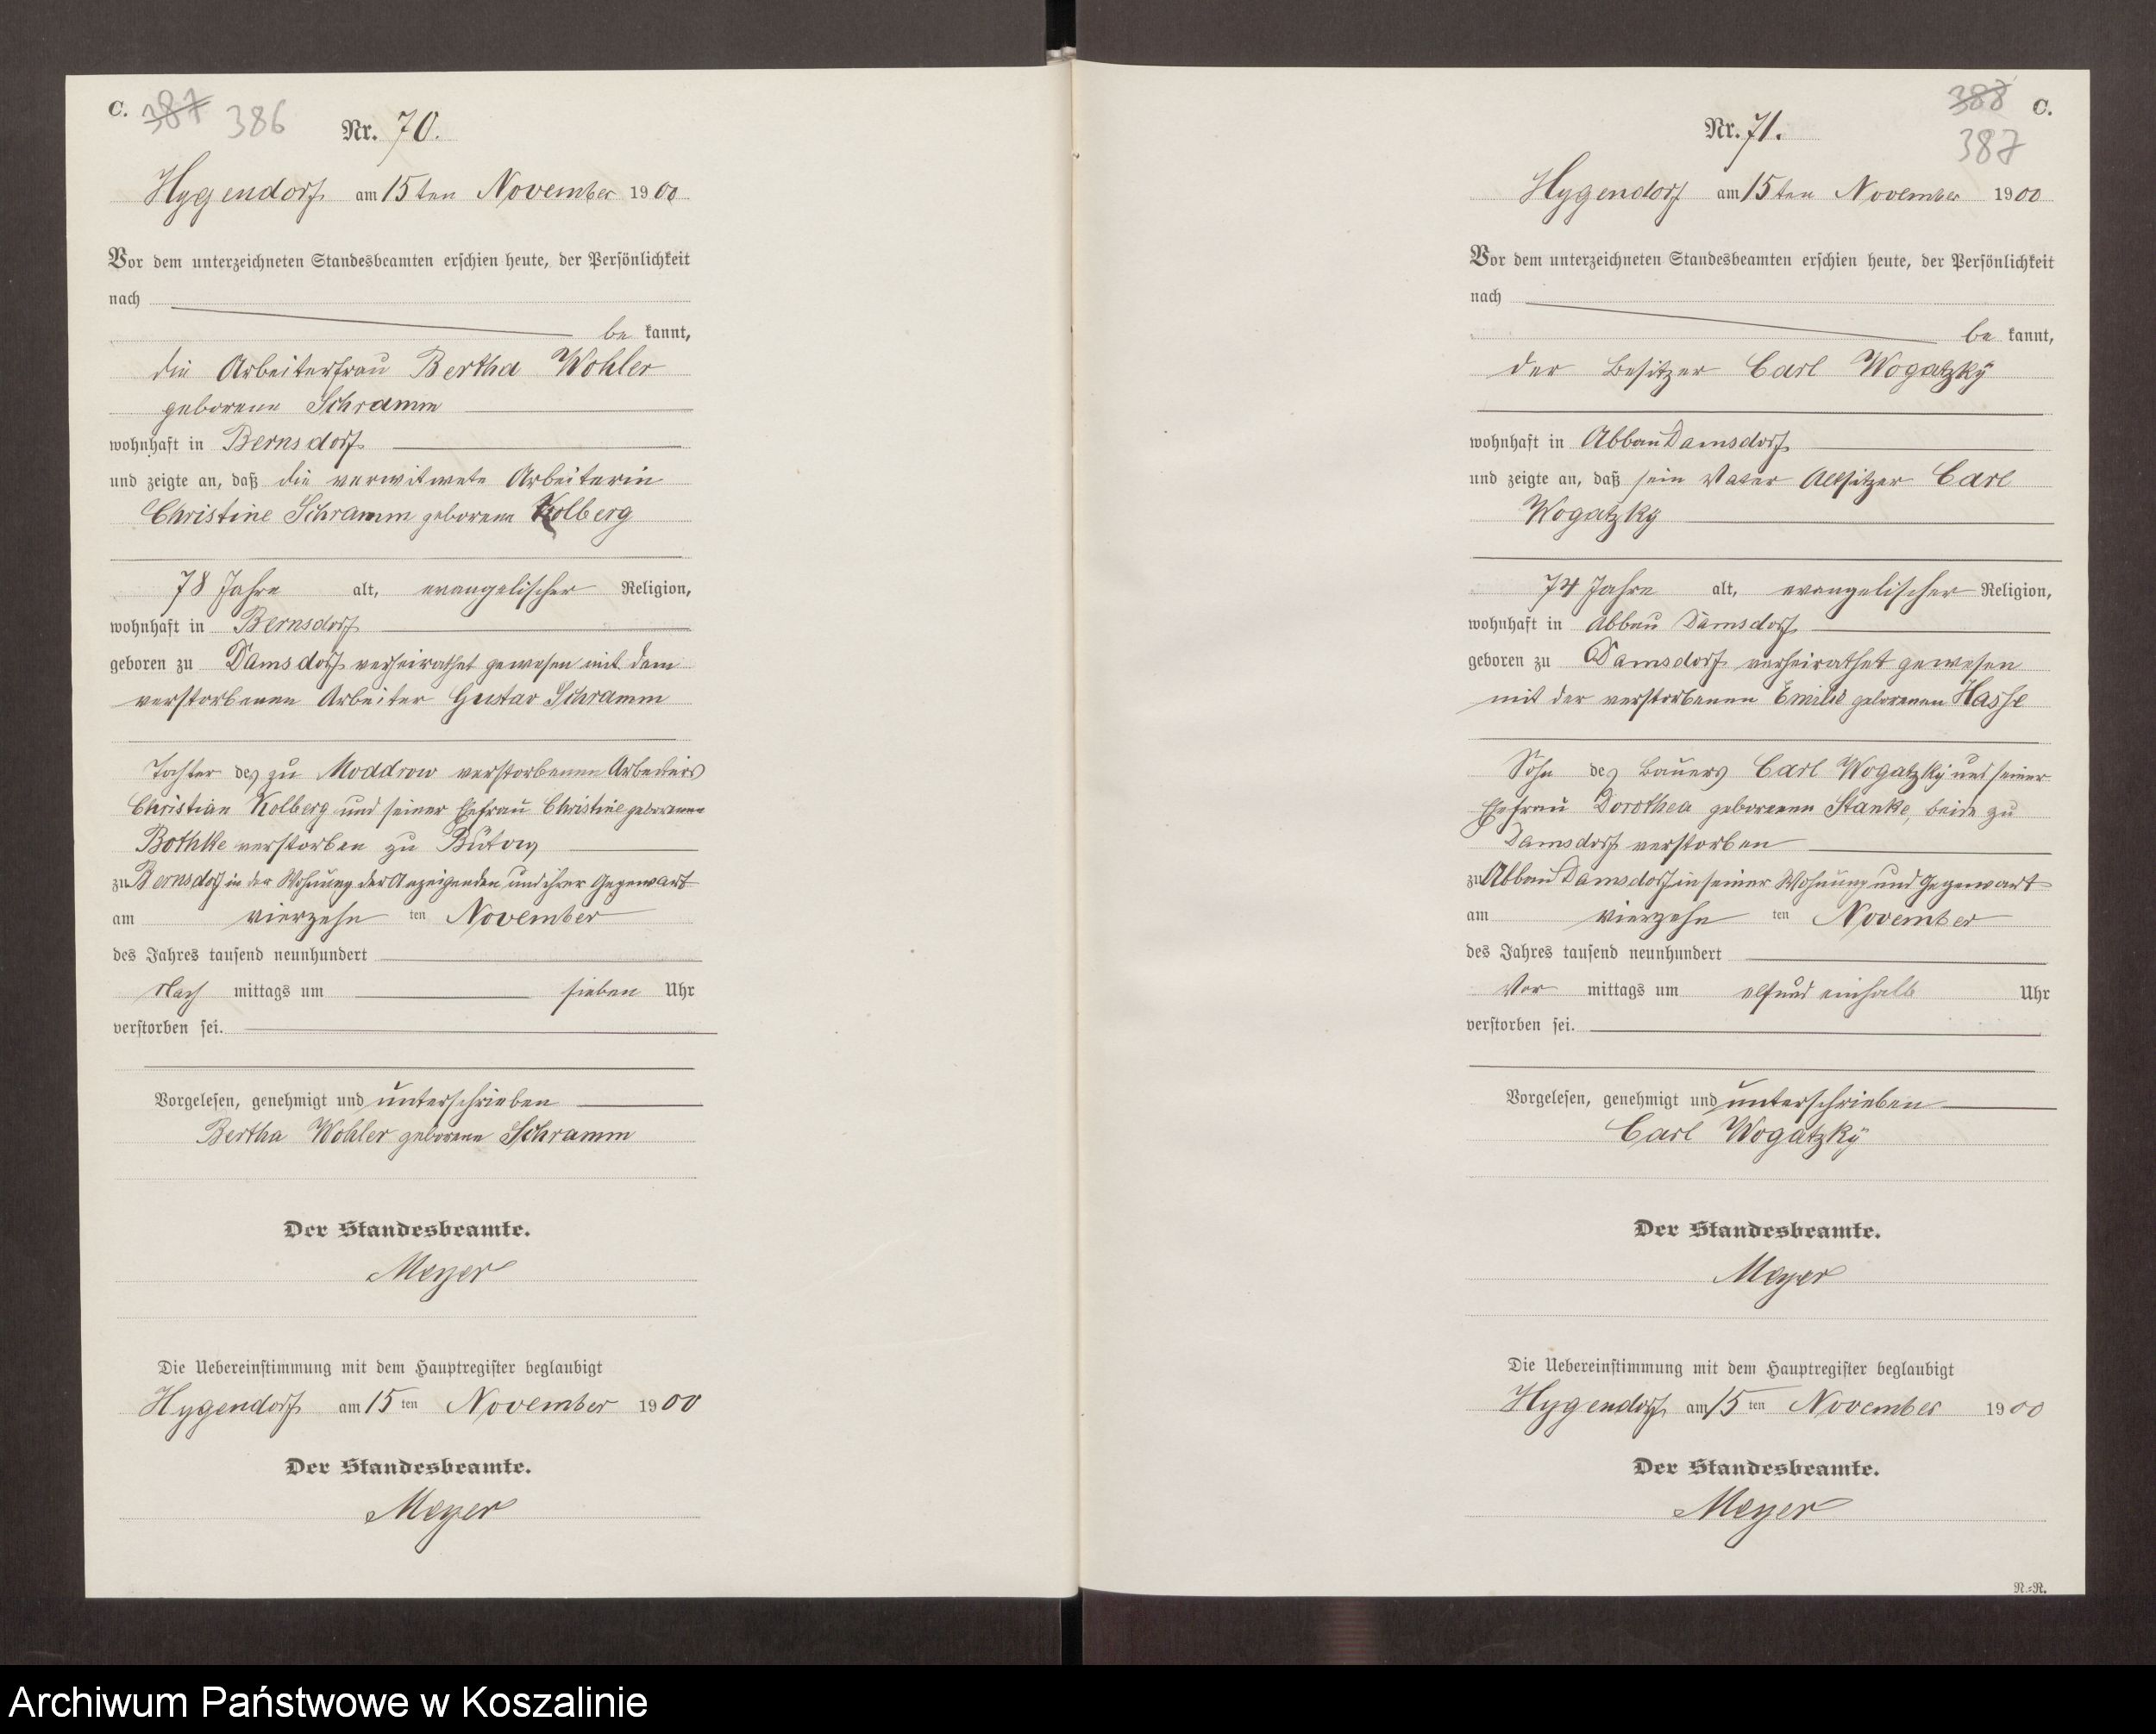 C. 387 386
Nr. 70.
Hygendorf am 15ten November 1900
Vor dem unterzeichneten Standesbeamten erschien heute, der Persönlichkeit
nach
be kannt,
die Arbeiterfrau Bertha Wohler
geborene Schramm
wohnhaft in Bernsdorf
und zeigte an, daß die verwitwete Arbeiterin
Christine Schramm geborene Kolberg
78 Jahre alt, evangelischer Religion,
wohnhaft in Bernsdorf
geboren zu Damsdorf verheirathet gewesen mit dem
verstorbenen Arbeiter Gustav Schramm
Tochter des zu Moddrow verstorbenen Arbeiters
Christian Kolberg und seiner Ehefrau Christine geborenen
Bothke verstorben zu Bütow
zu Bernsdorf in der Wohnung der Anzeigenden, und ihrer Gegenwart
am vierzehn ten November
des Jahres tausend neunhundert
Nach mittags um sieben Uhr
verstorben sei.
Vorgelesen, genehmigt und unterschrieben
Bertha Wohler geborene Schramm
Der Standesbeamte.
Meyer
Die Uebereinstimmung mit dem Hauptregister beglaubigt
Hygendorf am 15 ten November 1900
Der Standesbeamte.
Meyer
388 C.
387
Nr. 71.
Hygendorf am 15ten November 1900
Vor dem unterzeichneten Standesbeamten erschien heute, der Persönlichkeit
nach
be kannt,
der Besitzer Carl Wogatzky
wohnhaft in Abbau Damsdorf
und zeigte an, daß sein Vater Altsitzer Carl
Wogatzky
74 Jahre alt, evangelischer Religion,
wohnhaft in Abbau Damsdorf
geboren zu Damsdorf verheirathet gewesen
mit der verstorbenen Emilie geborenen Hasse
Sohn des Bauers Carl Wogatzky und seiner
Ehefrau Dorothea geborenen Stanke, beide zu
Damsdorf verstorben
zu Abbau Damsdorf in seiner Wohnung und Gegenwart
am vierzehn ten November
des Jahres tausend neunhundert
Vor mittags um elf und einhalb Uhr
verstorben sei.
Vorgelesen, genehmigt und unterschrieben
Carl Wogatzky
Der Standesbeamte.
Meyer
Die Uebereinstimmung mit dem Hauptregister beglaubigt
Hygendorf am 15 ten November 1900
Der Standesbeamte.
Meyer
N.=R.
Archiwum Państwowe w Koszalinie